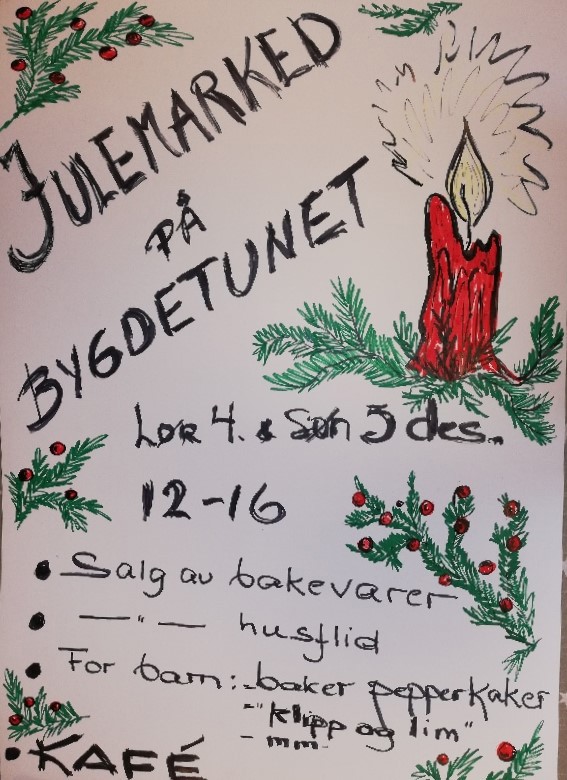 JULEMARKED
PÅ
BYGDETUNET
Lør 4. & Søn 5 des.
12-16
• Salg av bakevarer
• — " — husflid
• For barn: - baker pepperkaker
- "klipp og lim"
- mm -
• KAFÉ